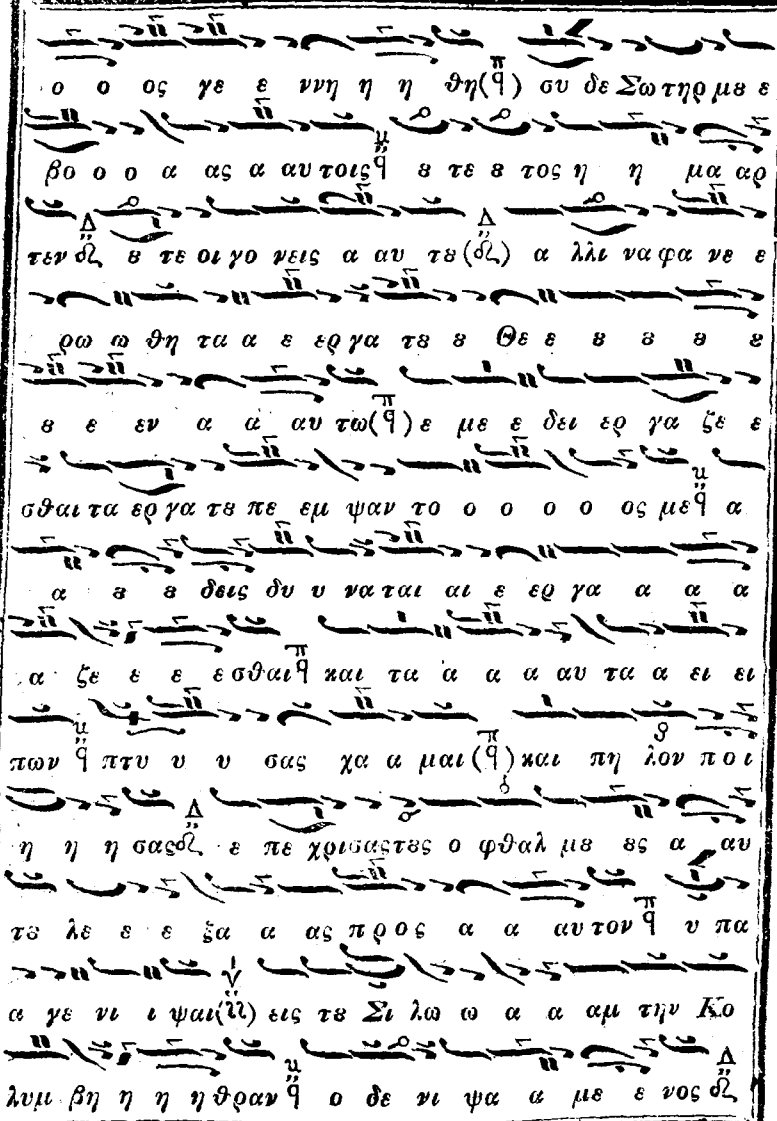 ο ο ος γε ε ννη η η θη(π̈ q) συ δε Σω τηρ μȣ ε
βο ο ο α ας α αυ τοις q ȣ τε ȣ τος η η μα αρ
τεν Δ ȣ τε οι γο νεις α αυ τȣ(Δ) α λλι να φα νε ε
ρω ω θη τα α ε ερ γα τȣ ȣ Θε ε ȣ ȣ ȣ ȣ
ȣ ε εν α α αυ τω(π q) ε με ε δει ερ γα ζε ε
σθαι τα ερ γα τȣ πε εμ ψαν το ο ο ο ο ος με q α
α ȣ ȣ δεις δυ υ να ται αι ε ερ γα α α α
α ζε ε ε εσθαι q και τα α α α αυ τα α ει ει
πων q πτυ υ υ σας χα α μαι(π q) και πη λον ποι
η η η σας Δ ε πε χρισας τȣς ο φθαλ μȣ ȣς α αυ
τȣ λε ε ε ξα α ας προς α α αυ τον q υ πα
α γε νι ι ψαι(ν) εις τȣ Σι λω ω α α αμ την Κο
λυμ βη η η η θραν q ο δε νι ψα α με ε νος Δ